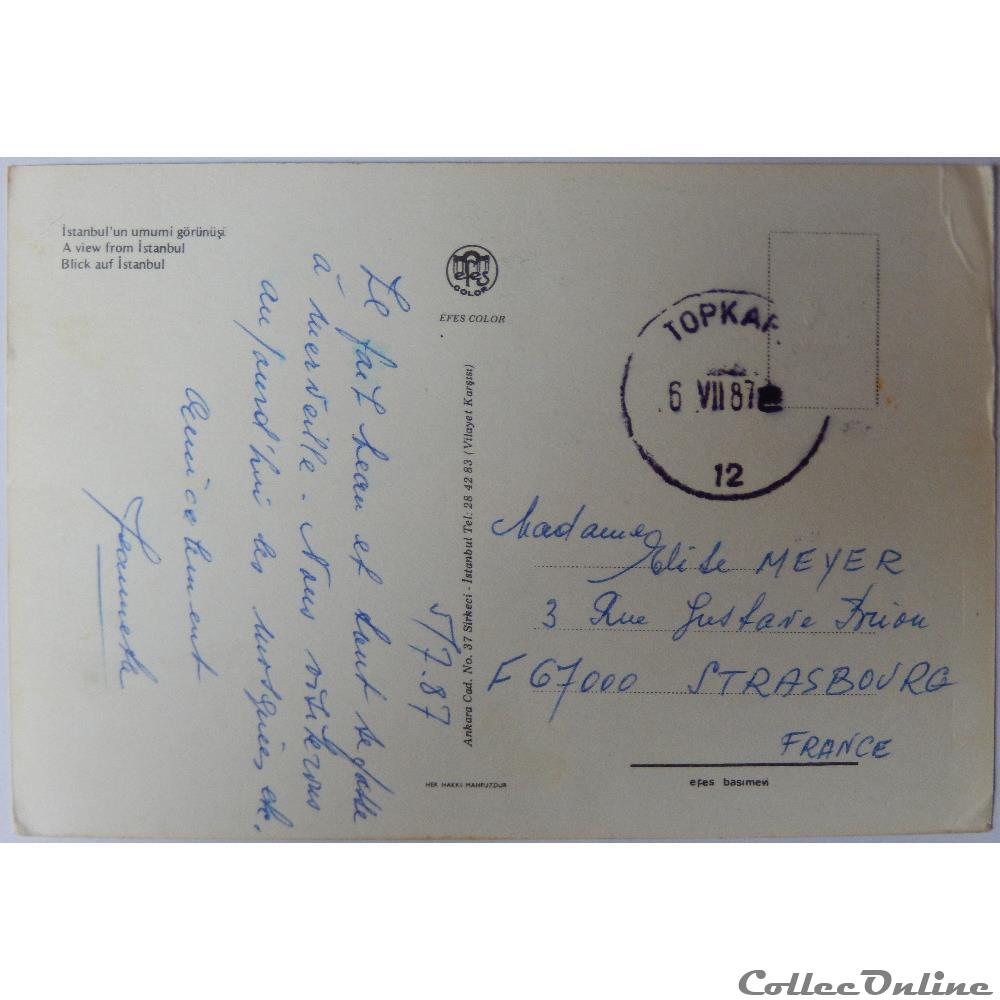 İstanbul'un umumi görünüşi
A view from İstanbul
Blick auf İstanbul
efes
COLOR
EFES COLOR
TOPKAP
6 VII 87
12
5/7.87
Il fait beau et tout se passe
à merveille. Nous visiterons
aujourd'hui les mosquées etc.
Amicalement
Ankara Cad. No. 37 Sirkeci - İstanbul Tel: 28 42 83 (Vilayet Karşısı)
Madame
Elise MEYER
3 Rue Gustave Brion
F 67000 STRASBOURG
FRANCE
HER HAKKI MAHFUZDUR
efes basımevi
CollecOnline